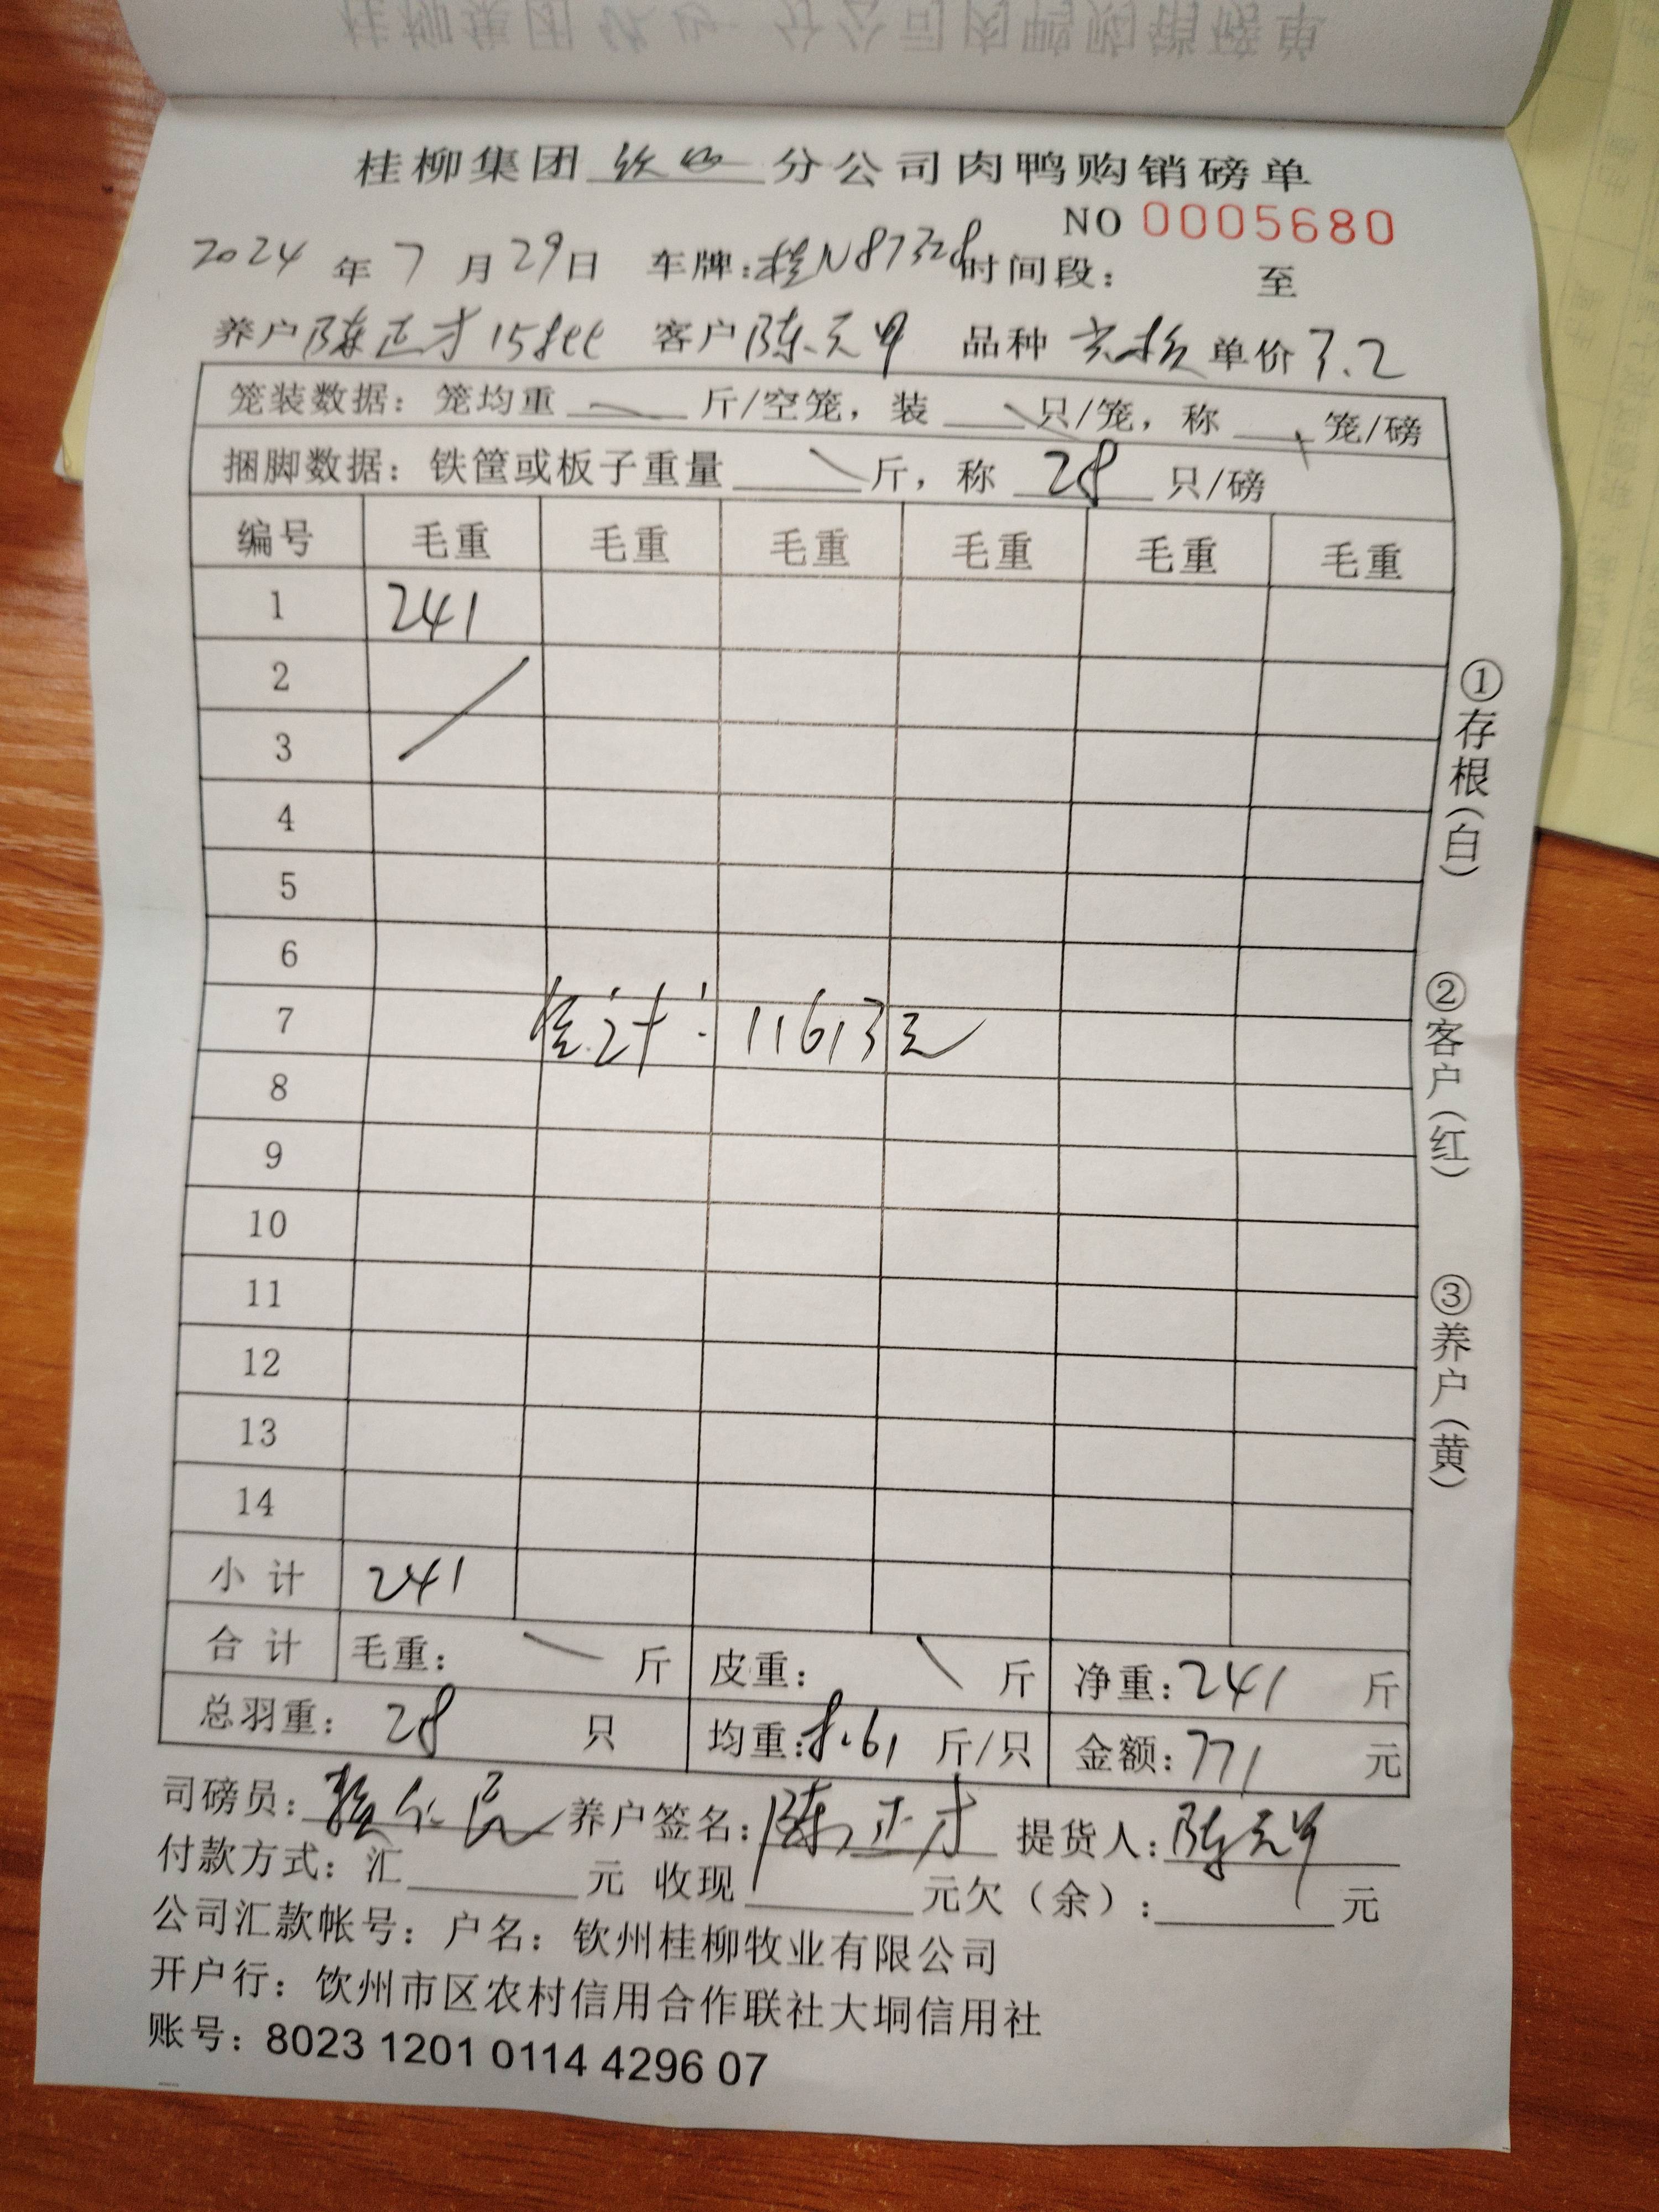 桂柳集团 钦州 分公司肉鸭购销磅单
NO 0005680
2024 年 7 月 29 日 车牌:桂N87328 时间段: 至
养户 陈正才 客户 陈元 品种 单价 3.2
笼装数据: 笼均重 斤/空笼, 装 只/笼, 称 笼/磅
捆脚数据: 铁筐或板子重量 斤, 称 28 只/磅
编号 毛重 毛重 毛重 毛重 毛重 毛重
1 241
2
3
4
5
6
7 总计: 11613元
8
9
10
11
12
13
14
小计 241
合计 毛重: 斤 皮重: 斤 净重: 241 斤
总羽重: 28 只 均重: 8.61 斤/只 金额: 771 元
司磅员: 养户签名: 陈正才 提货人: 陈元
付款方式: 汇 元 收现 元欠(余): 元
公司汇款帐号: 户名: 钦州桂柳牧业有限公司
开户行: 钦州市区农村信用合作联社大垌信用社
账号: 8023 1201 0114 4296 07
①存根(白)
②客户(红)
③养户(黄)